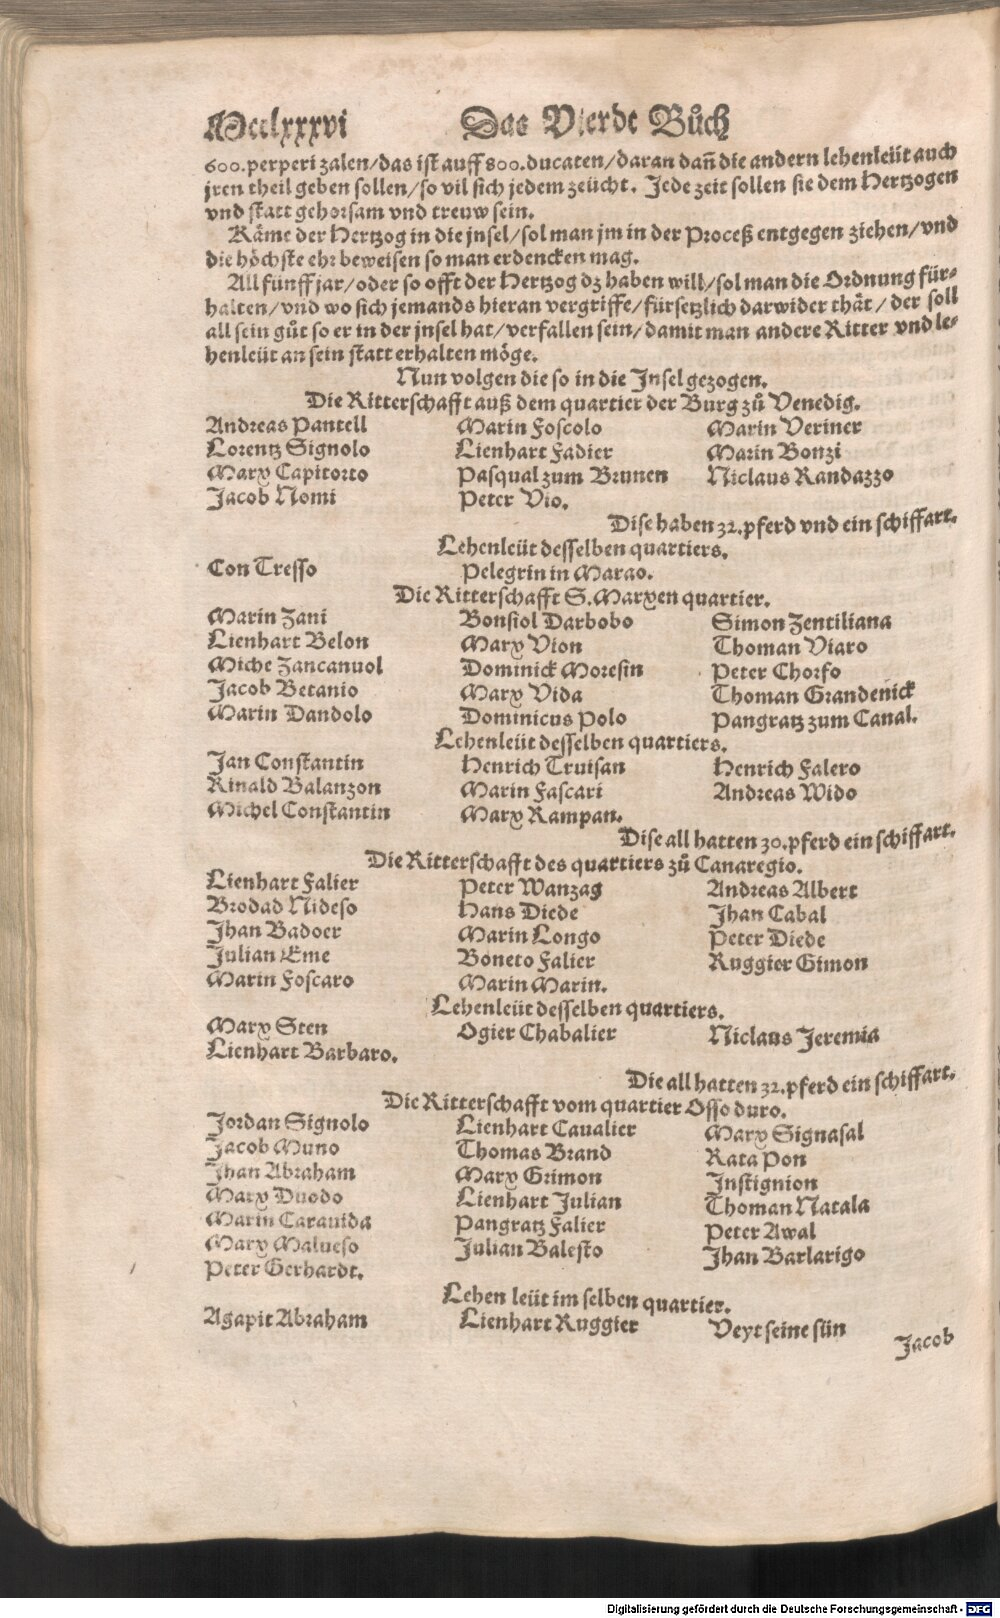 Mcclxxxvi Das Vierde Bůch
600. perperi zalen/das ist auff 800. ducaten/daran dañ die andern lehenleüt auch
jren theil geben sollen/so vil sich jedem zeücht. Jede zeit sollen sie dem Hertzogen
vnd statt gehorsam vnd treuw sein.
Käme der Hertzog in die jnsel/sol man jm in der Proceß entgegen ziehen/vnd
die höchste ehr beweisen so man erdencken mag.
All fünff jar/oder so offt der Hertzog dz haben will/sol man die Ordnung für-
halten/vnd wo sich jemands hieran vergriffe/fürsetzlich darwider thät/der soll
all sein gůt so er in der jnsel hat/verfallen sein/damit man andere Ritter vnd le-
henleüt an sein statt erhalten möge.
Nun volgen die so in die Jnsel gezogen.
Die Ritterschafft auß dem quartier der Burg zů Venedig.
Andreas Pantell Marin Foscolo Marin Veriner
Lorentz Signolo Lienhart Fadier Marin Bonzi
Marx Capitorto Pasqual zum Brunen Niclaus Randazzo
Jacob Nomi Peter Vio.
Dise haben 32. pferd vnd ein schiffart.
Lehenleüt desselben quartiers.
Con Tresso Pelegrin in Marao.
Die Ritterschafft S. Marxen quartier.
Marin Zani Bonsiol Darbobo Simon Zentiliana
Lienhart Belon Marx Vion Thoman Viaro
Miche Zancanuol Dominick Moresin Peter Chorfo
Jacob Betanio Marx Vida Thoman Grandenick
Marin Dandolo Dominicus Polo Pangratz zum Canal.
Lehenleüt desselben quartiers.
Jan Constantin Henrich Truisan Henrich Falero
Rinald Balanzon Marin Fascari Andreas Wido
Michel Constantin Marx Rampan.
Dise all hatten 30. pferd ein schiffart.
Die Ritterschafft des quartiers zů Canaregio.
Lienhart Falier Peter Wanzag Andreas Albert
Brodad Nideso Hans Diede Jhan Cabal
Jhan Badoer Marin Longo Peter Diede
Julian Eme Boneto Falier Ruggier Gimon
Marin Foscaro Marin Marin.
Lehenleüt desselben quartiers.
Marx Sten Ogier Chabalier Niclaus Jeremia
Lienhart Barbaro.
Die all hatten 32. pferd ein schiffart.
Die Ritterschafft vom quartier Osso duro.
Jordan Signolo Lienhart Caualier Marx Signasal
Jacob Muno Thomas Brand Rata Pon
Jhan Abraham Marx Grimon Jnstignion
Marx Duodo Lienhart Julian Thoman Natala
Marin Carauida Pangratz Falier Peter Awal
Marx Malueso Julian Balesto Jhan Barlarigo
Peter Gerhardt.
Lehen leüt im selben quartier.
Agapit Abraham Lienhart Ruggier Veyt seine sün
Jacob
Digitalisierung gefördert durch die Deutsche Forschungsgemeinschaft - DFG